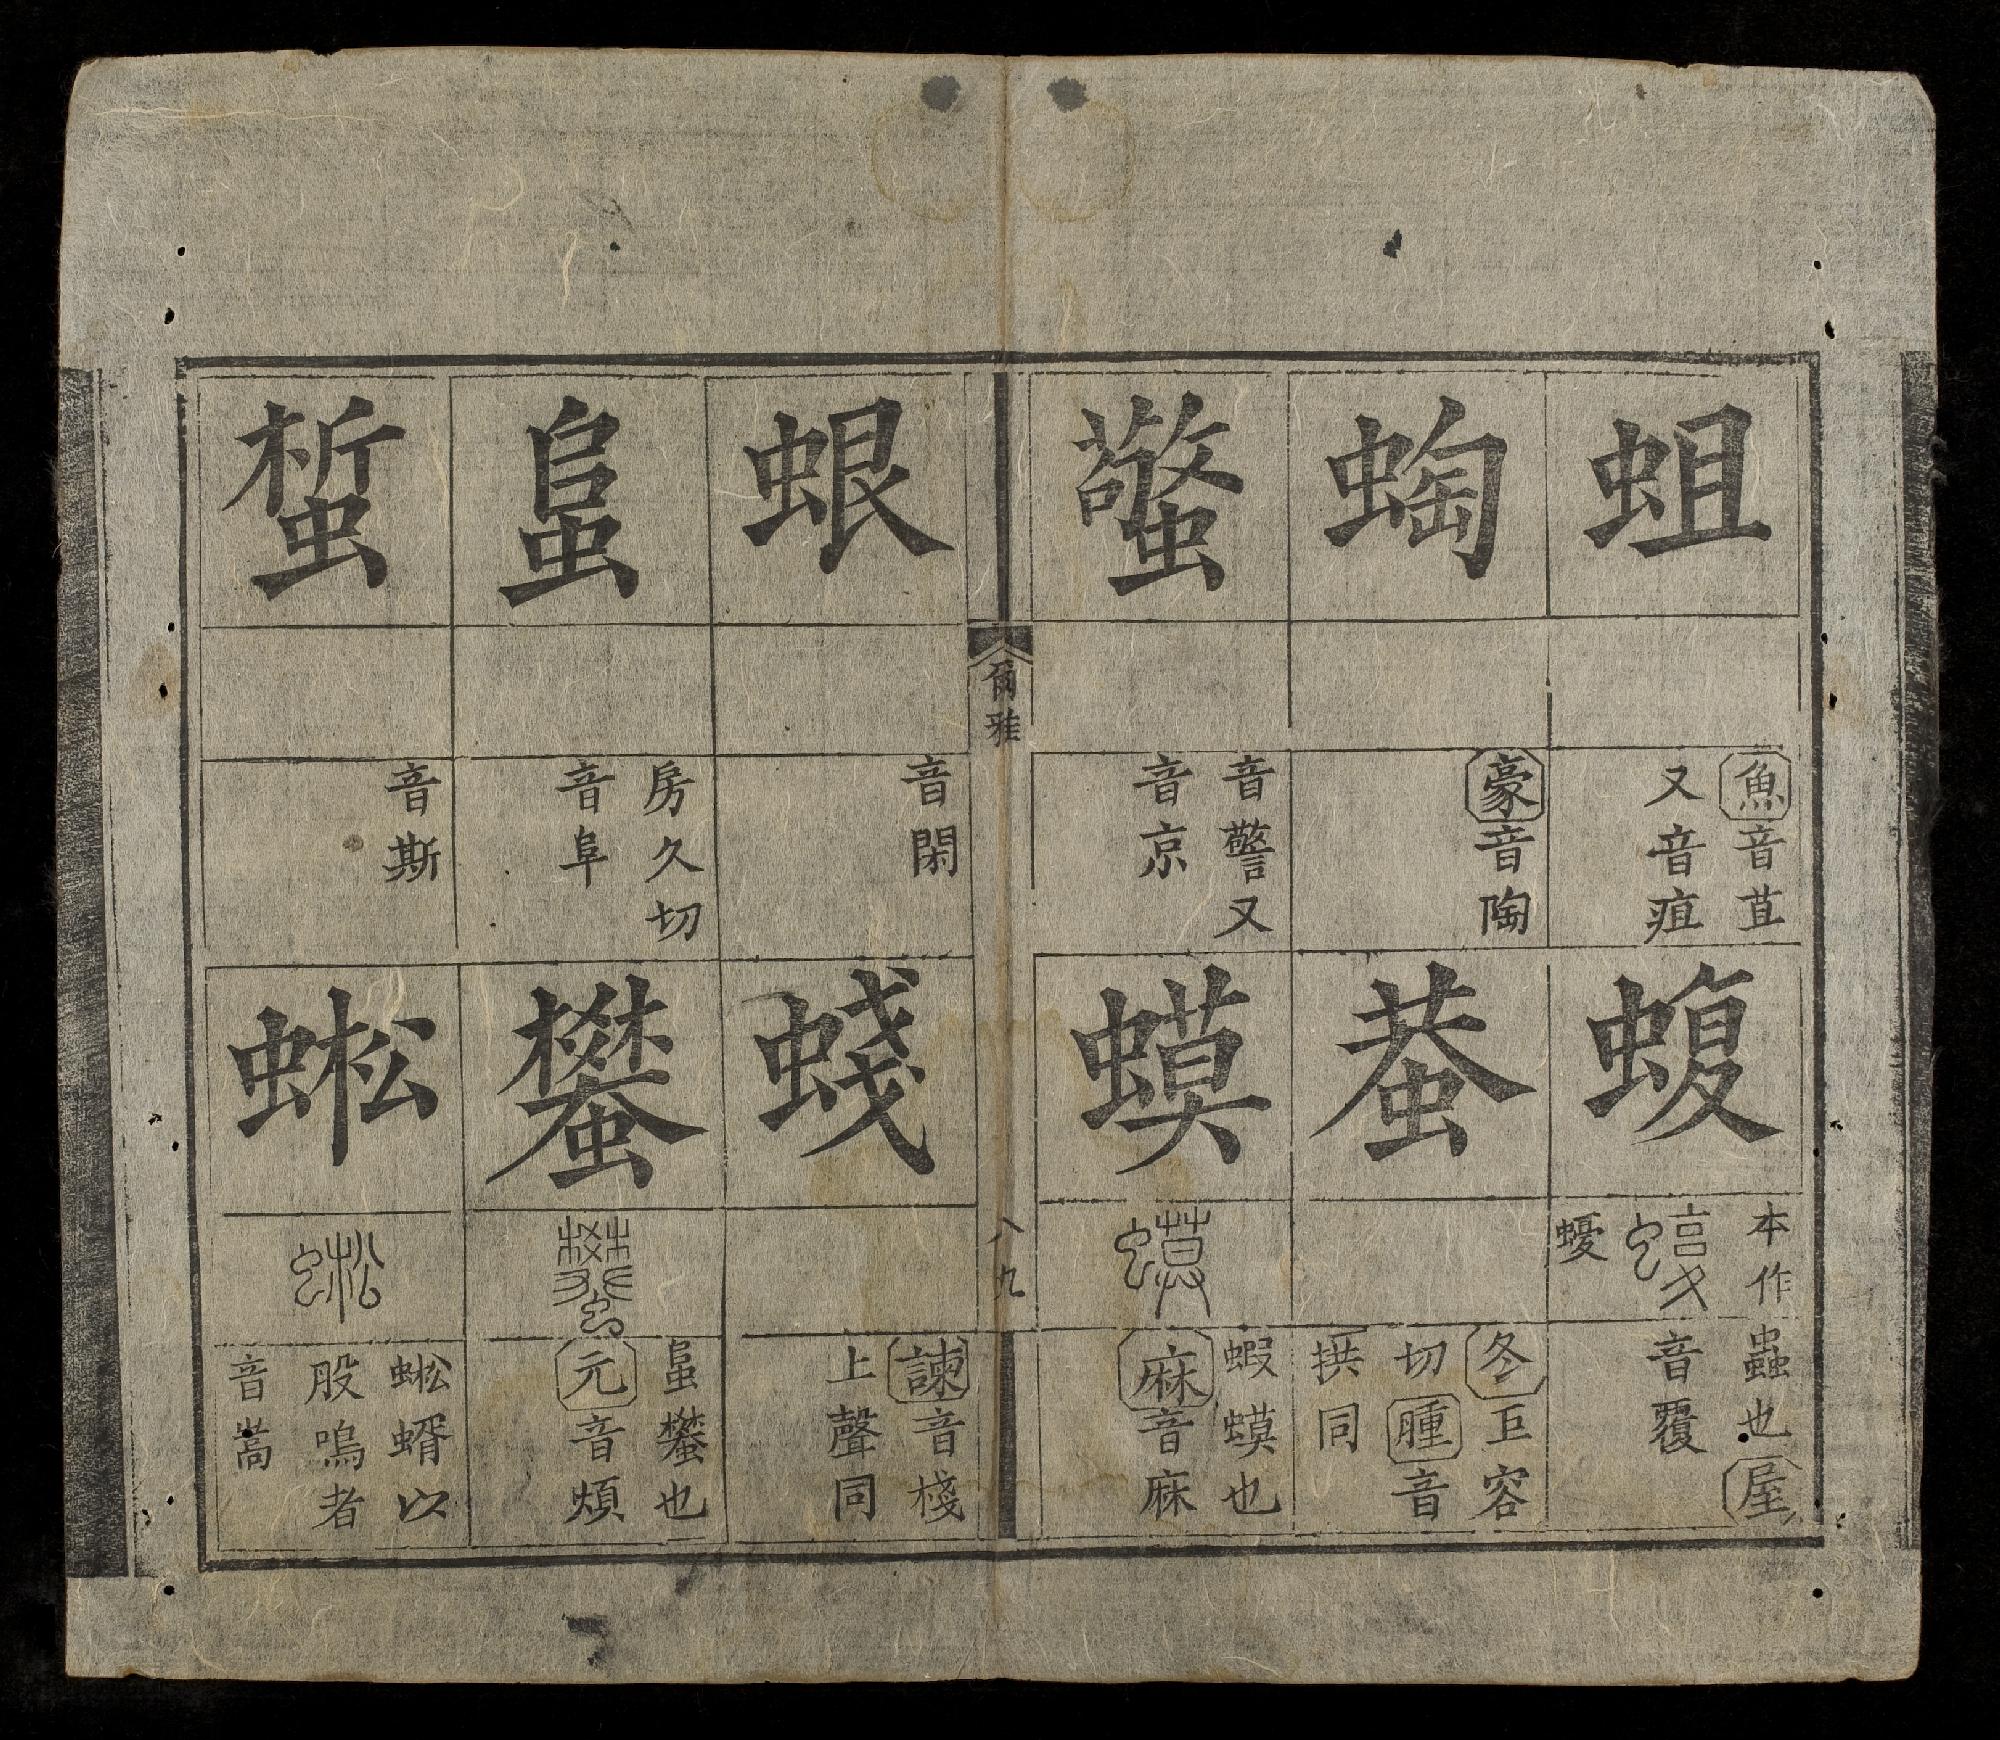 蛆
魚音苴
又音疽
蜪
豪音陶
蟼
音警又
音京
蝮
本作
蟲也屋
音覆
蛬
冬巨容
切腫音
拱同
蟆
蝦蟆也
麻音麻
爾雅
八九
蛝
音閑
䘀
房久切
音阜
蜤
音斯
䗃
諫音棧
上聲同
蠜
䘀蠜也
元音煩
蜙
蜙蝑以
股嗚者
音嵩